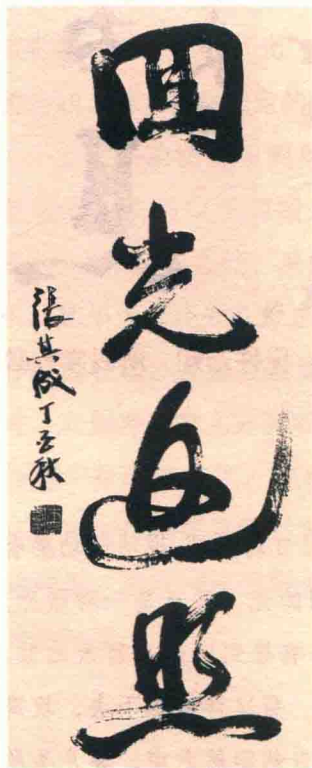 回光返照
張其成丁亥秋